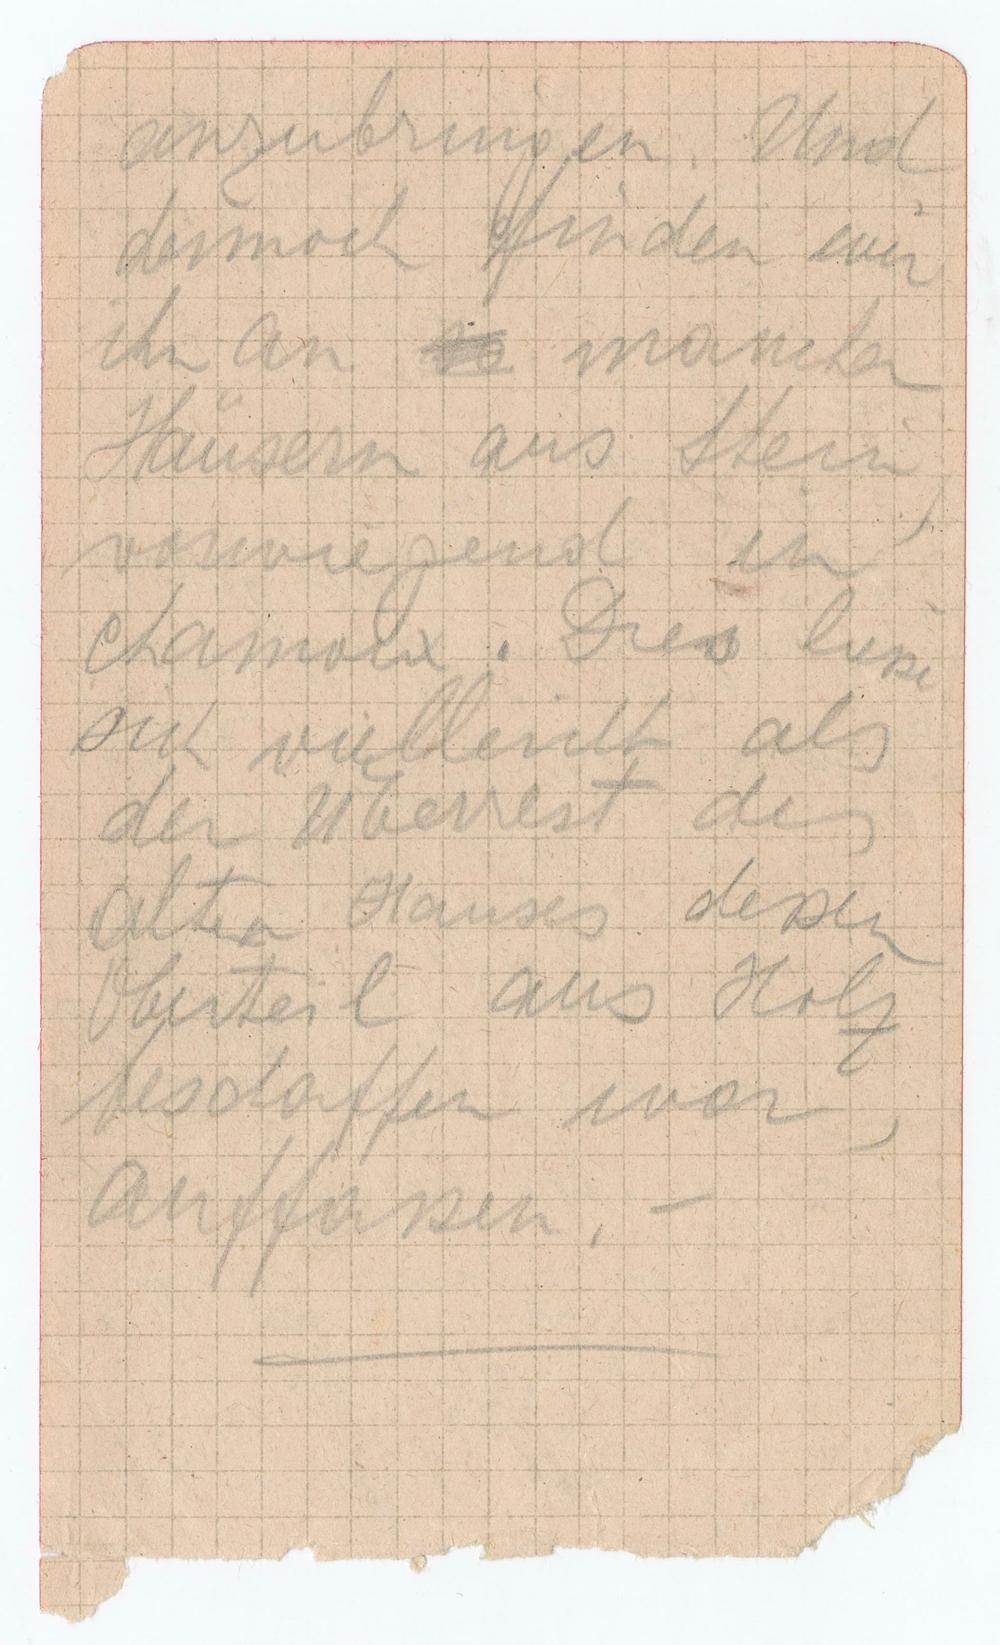 anzubringen. Und
dennoch finden wir
ihn an manchen
Häusern aus Stein,
vorwiegend in
Chamoix. Dies liese
sich vielleicht als
der Überrest des
alten Hauses dessen
Oberteil aus Holz
beschaffen war,
auffassen. –